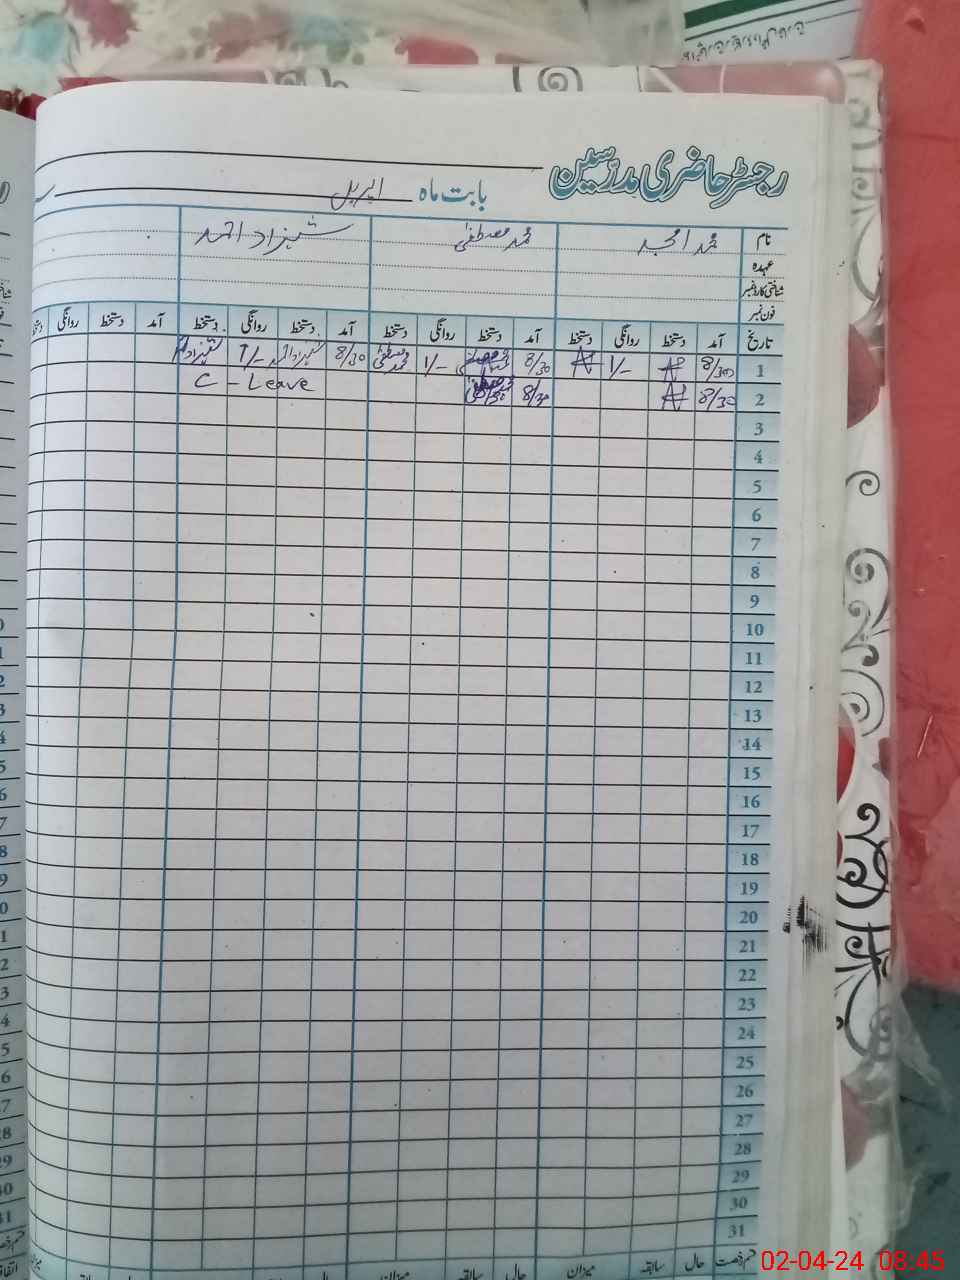 رجسٹر حاضری مدرسین
بابت ماہ اپریل
نام محمد امجد محمد مصطفیٰ شہزاد احمد
عہدہ
شناختی کارڈ نمبر
فون نمبر
تاریخ آمد دستخط روانگی دستخط آمد دستخط روانگی دستخط آمد دستخط روانگی دستخط آمد دستخط روانگی
1 8/30 1/- 8/30 مصطفیٰ 1/- محمد مصطفیٰ 8/30 شہزاد احمد 1/- شہزاد
2 8/30 8/30 مصطفیٰ C - Leave
3
4
5
6
7
8
9
10
11
12
13
14
15
16
17
18
19
20
21
22
23
24
25
26
27
28
29
30
31
قسم رخصت حال سابقہ میزان حال سابقہ میزان
02-04-24 08:45